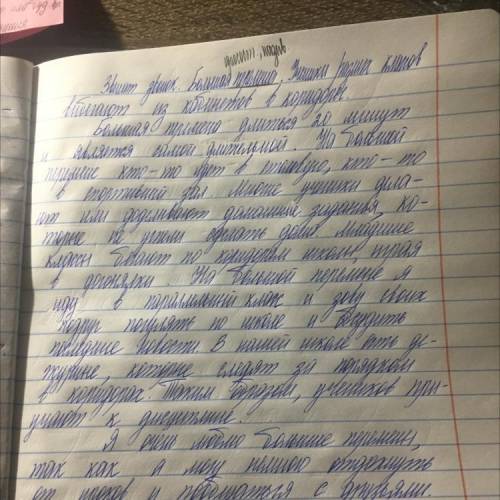 Звенит звонок. Большая перемена. Ученики разных классов
выбегают из кабинетов в коридоры.
Большая перемена длиться 20 минут
и является самой длительной. На большой
перемене кто-то идёт в столовую, кто-то
в спортивный зал. Многие ученики дела-
ют или доделывают домашние задания, ко-
торые не успели сделать дома. Младшие
классы бегают по коридорам школы, играя
в догонялки. На большой перемене я
иду в параллельный класс и зову своих
подруг погулять по школе и обсудить
последние новости. В нашей школе есть де-
журные, которые следят за порядком
в коридорах. Таким образом, учеников при-
учают к дисциплине.
Я очень люблю большие перемены,
так как я могу немного отдохнуть
от уроков и поболтать с друзьями